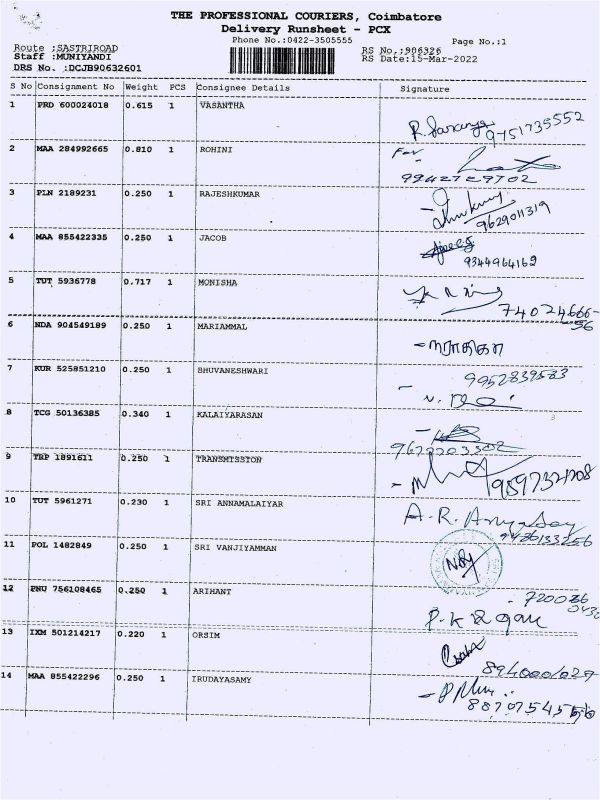 THE PROFESSIONAL COURIERS, Coimbatore
Delivery Runsheet - PCX
Phone No.:0422-3505555
Page No.:1
Route :SASTRIROAD
Staff :MUNIYANDI
DRS No. :DCJB90632601
RS No.:906326
RS Date:15-Mar-2022
S No Consignment No Weight PCS Consignee Details Signature
1 PRD 600024018 0.615 1 VASANTHA
9751735552
2 MAA 284992665 0.810 1 ROHINI
For
9942729702
3 PLN 2189231 0.250 1 RAJESHKUMAR
9629011319
4 MAA 855422335 0.250 1 JACOB
9344964169
5 TUT 5936778 0.717 1 MONISHA
74024666-
56
6 NDA 904549189 0.250 1 MARIAMMAL
7 KUR 525851210 0.250 1 BHUVANESHWARI
9952839583
8 TCG 50136385 0.340 1 KALAIYARASAN
9 TRP 1891611 0.250 1 TRANSMISSION
10 TUT 5961271 0.230 1 SRI ANNAMALAIYAR
11 POL 1482849 0.250 1 SRI VANJIYAMMAN
12 PNU 756108465 0.250 1 ARIHANT
13 IXM 501214217 0.220 1 ORSIM
14 MAA 855422296 0.250 1 IRUDAYASAMY